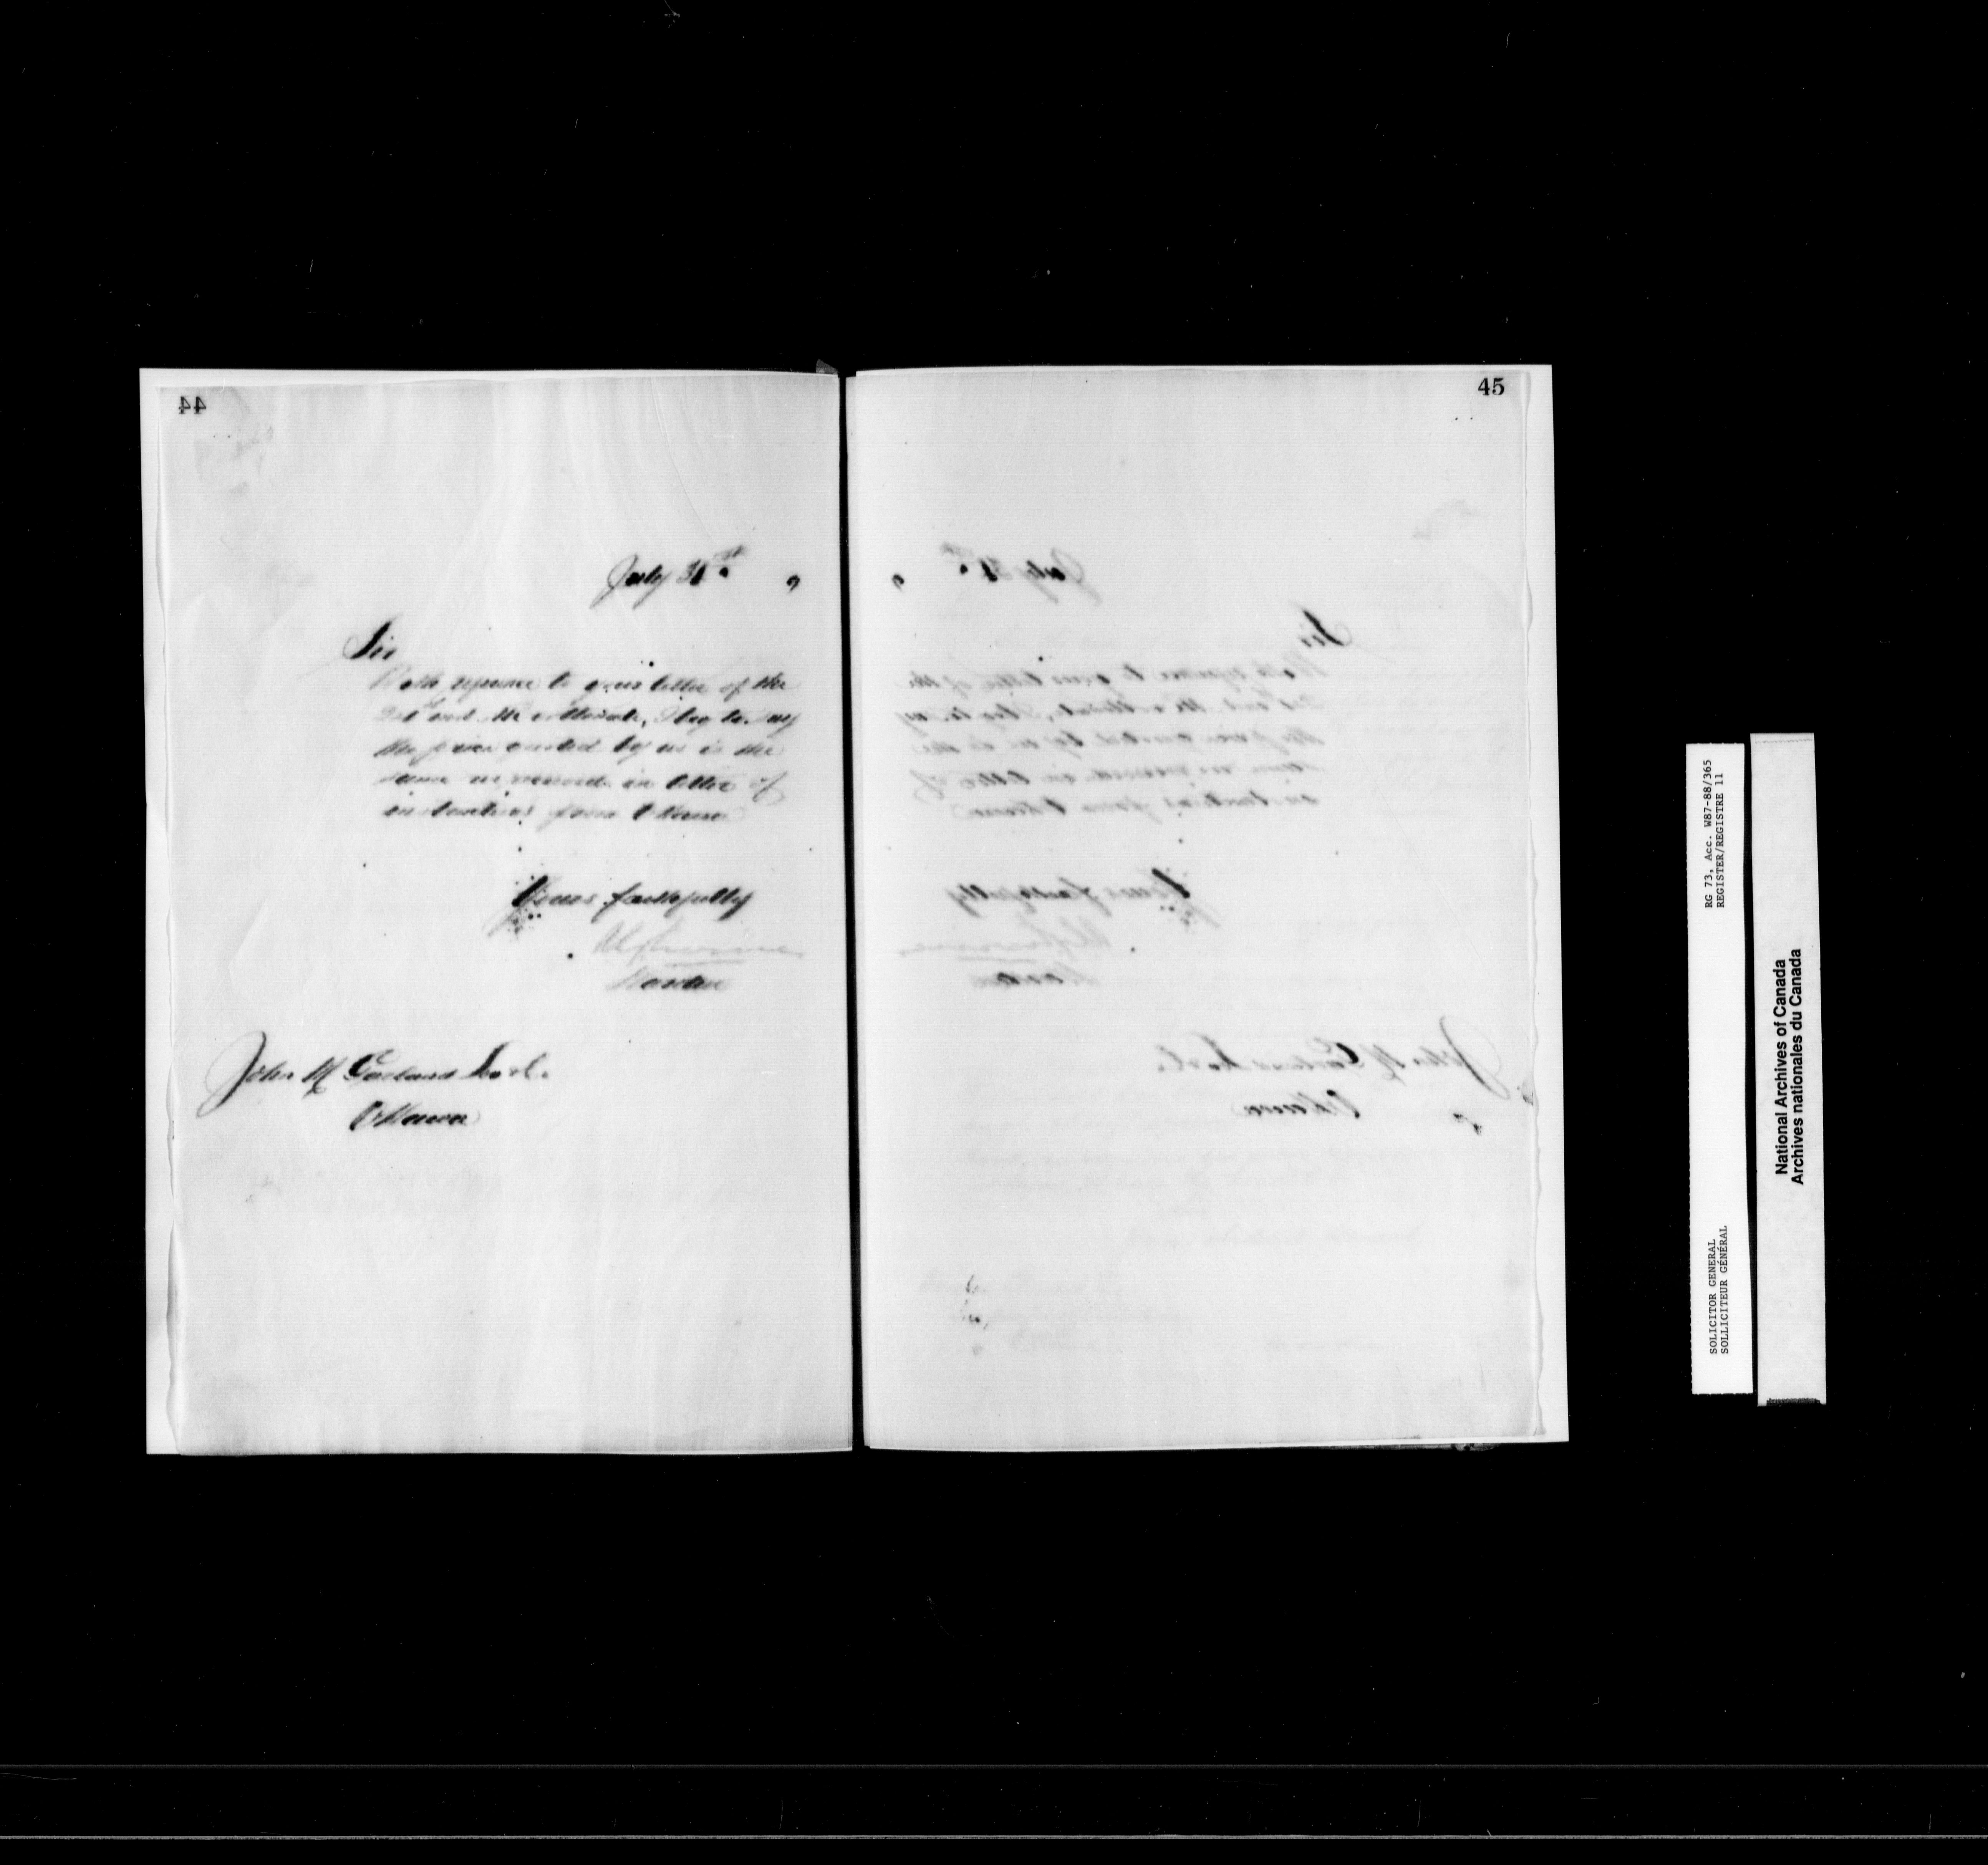 44
July 31st 9
Sir
With reference to your letter of the
31st inst. I beg to say
the price quoted by us is the
same as in letter of
instructions from Ottawa
Yours faithfully
Warden
John M Garland Esq.
Ottawa
45
RG 73, Acc. W87-88/365
REGISTER/REGISTRE 11
SOLICITOR GENERAL
SOLLICITEUR GÉNÉRAL
National Archives of Canada
Archives nationales du Canada